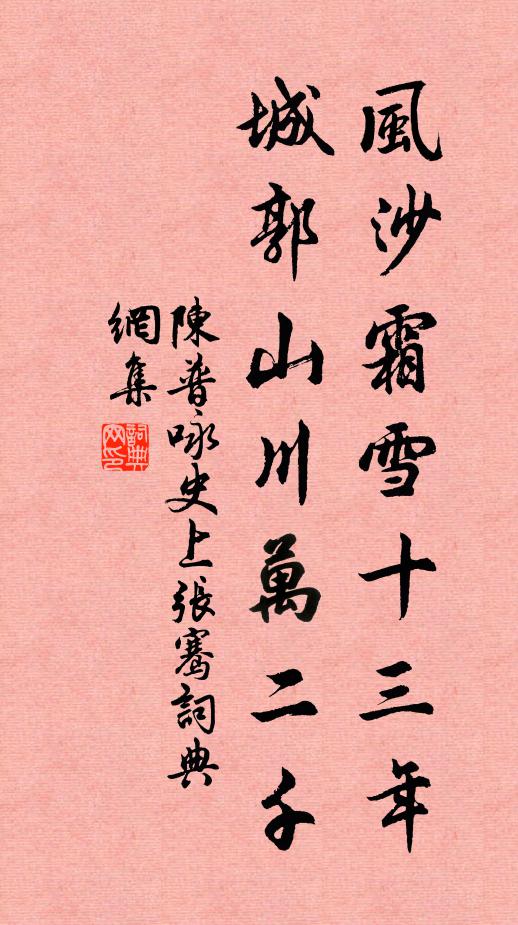 風沙霜雪十三年
城郭山川萬二千
陳普咏史上張騫詞典
網集
詞典網印